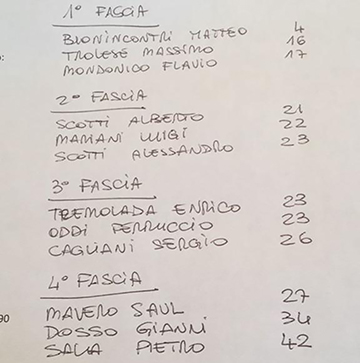 1° FASCIA
BIONINCONTRI MATTEO 4
TROLESE MASSIMO 16
MONDONICO FLAVIO 17
2° FASCIA
SCOTTI ALBERTO 21
MARIANI LUIGI 22
SCOTTI ALESSANDRO 23
3° FASCIA
TREMOLADA ENRICO 23
ODDI FERRUCCIO 23
CAGLIANI SERGIO 26
4° FASCIA
MAVERO SAUL 27
DOSSO GIANNI 34
SALA PIETRO 42
90